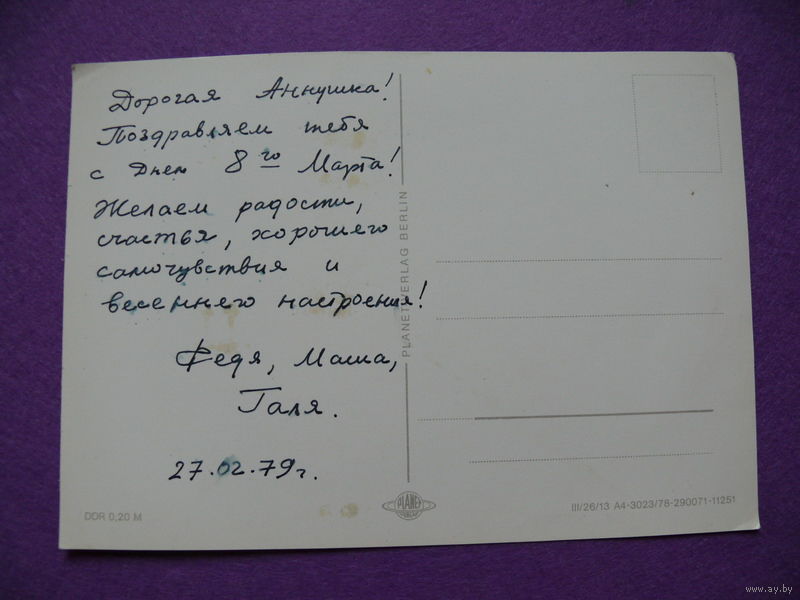 Дорогая Аннушка!
Поздравляем тебя
с Днем 8го Марта!
Желаем радости,
счастья, хорошего
самочувствия и
весеннего настроения!
Федя, Маша,
Галя.
27.02.79г.
DDR 0,20 M
PLANET-VERLAG BERLIN
PLANET
III/26/13 A4-3023/78-290071-11251
www.ay.by